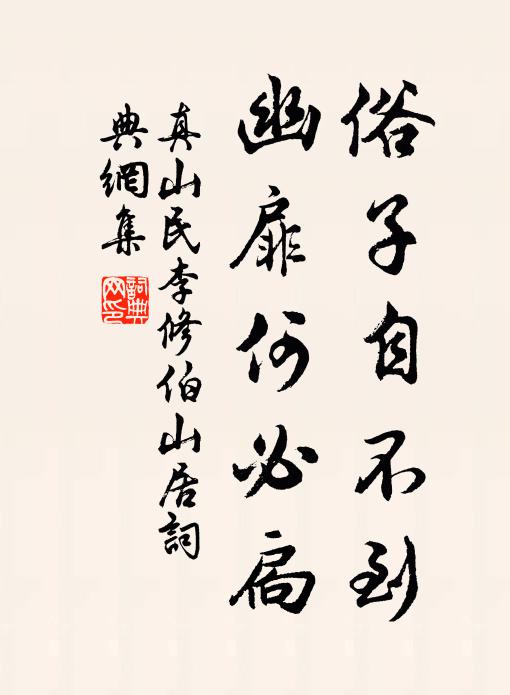 俗子自不到
幽扉何必扃
真山民李修伯山居詞
典網集
詞典
网印